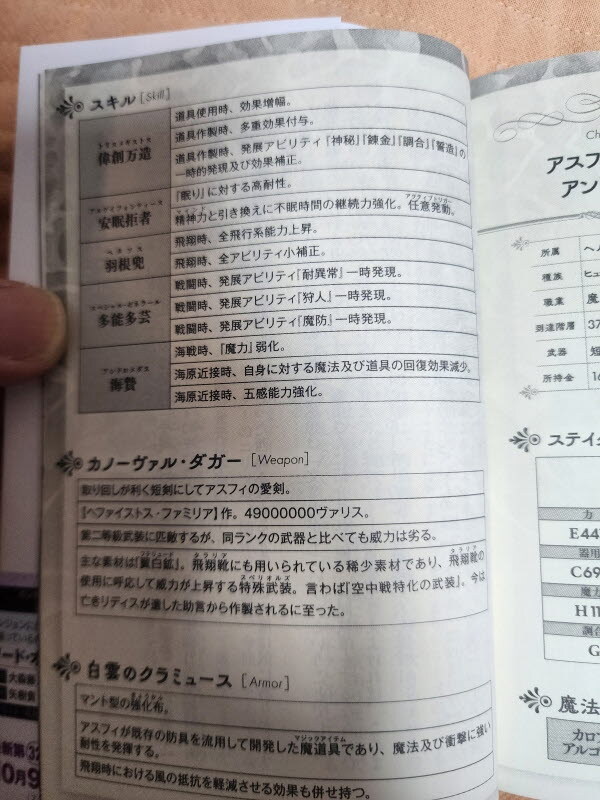 スキル [Skill]
偉創万造
道具使用時、効果増幅。
道具作製時、多重効果付与。
道具作製時、発展アビリティ『神秘』『錬金』『調合』『誓造』の
一時的発現及び効果補正。
安眠拒者
『眠り』に対する高耐性。
精神力と引き換えに不眠時間の継続力強化。任意発動。
羽根兜
飛翔時、全飛行系能力上昇。
飛翔時、全アビリティ小補正。
多能多芸
戦闘時、発展アビリティ『耐異常』一時発現。
戦闘時、発展アビリティ『狩人』一時発現。
戦闘時、発展アビリティ『魔防』一時発現。
海贄
海戦時、『魔力』弱化。
海原近接時、自身に対する魔法及び道具の回復効果減少。
海原近接時、五感能力強化。
カノーヴァル・ダガー [Weapon]
取り回しが利く短剣にしてアスフィの愛剣。
【ヘファイストス・ファミリア】作。49000000ヴァリス。
第二等級武装に匹敵するが、同ランクの武器と比べても威力は劣る。
主な素材は『翼白鉱』。飛翔靴にも用いられている稀少素材であり、飛翔靴の
使用に呼応して威力が上昇する特殊武装。言わば『空中戦特化の武装』。今は
亡きリディスが遺した助言から作製されるに至った。
白雲のクラミュース [Armor]
マント型の強化布。
アスフィが既存の防具を流用して開発した魔道具であり、魔法及び衝撃に強い
耐性を発揮する。
飛翔時における風の抵抗を軽減させる効果も併せ持つ。
アスフ
アン
所属
種族
職業
到達階層 37
武器
所持金
ステイタ
力
E44
器用
C69
魔力
H11
調合
G
魔法
カロ
アルゴ